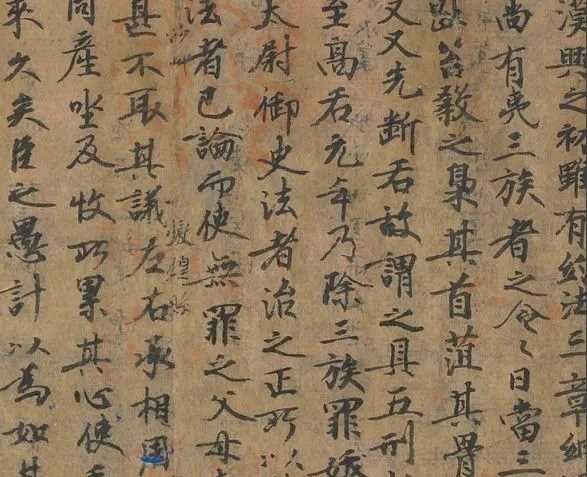 漢興之初雖有約法三章網
尚有夷三族者之令〻曰當三
趾笞敎之梟其首菹其骨
又又先斷舌故謂之具五刑
至高后元年乃除三族罪祅
太尉御史法者治之正所以
法者已論而使無罪之父母
甚不取其議左右承相周
同產坐及收所累其心使
來久矣臣之愚計以為如其